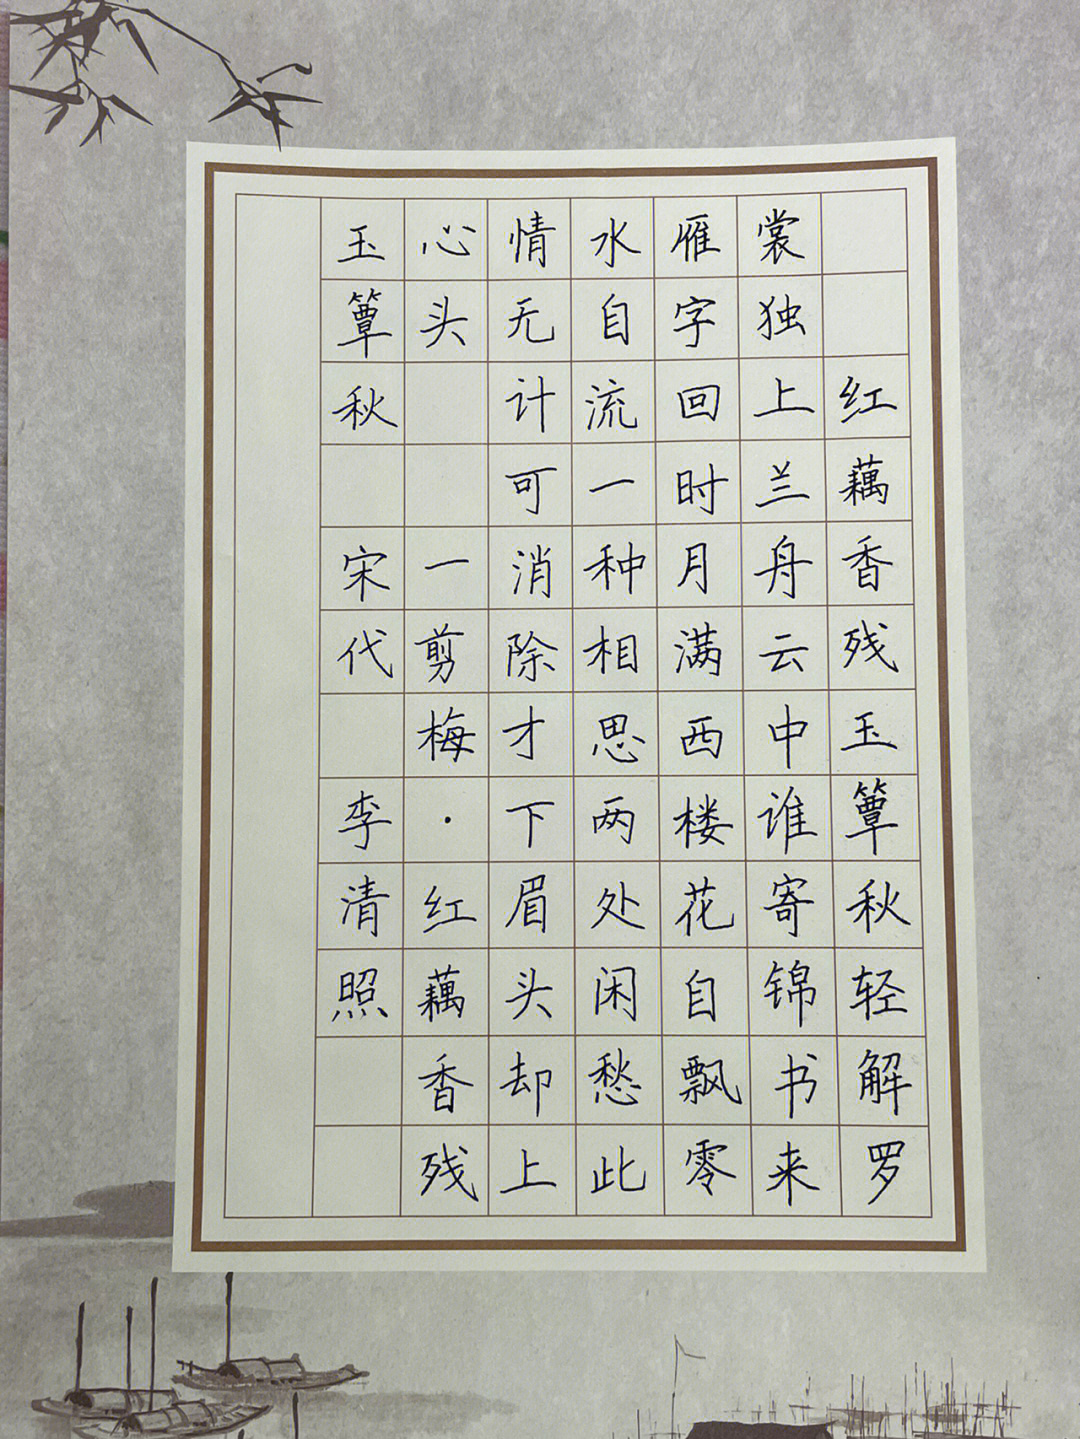 红藕香残玉簟秋轻解罗
裳独上兰舟云中谁寄锦书来
雁字回时月满西楼花自飘零
水自流一种相思两处闲愁此
情无计可消除才下眉头却上
心头 一剪梅·红藕香残
玉簟秋 宋代 李清照